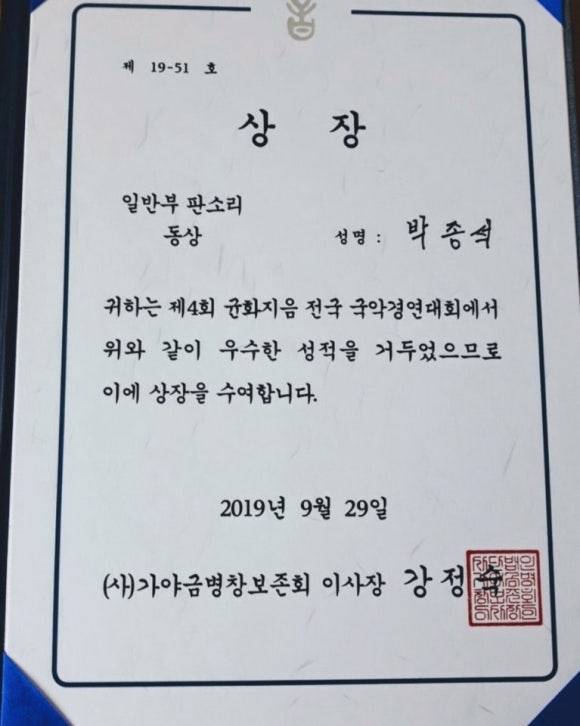 제 19-51 호
상 장
일반부 판소리
동상
성명 : 박종석
귀하는 제4회 균화지음 전국 국악경연대회에서
위와 같이 우수한 성적을 거두었으므로
이에 상장을 수여합니다.
2019년 9월 29일
(사)가야금병창보존회 이사장 강정